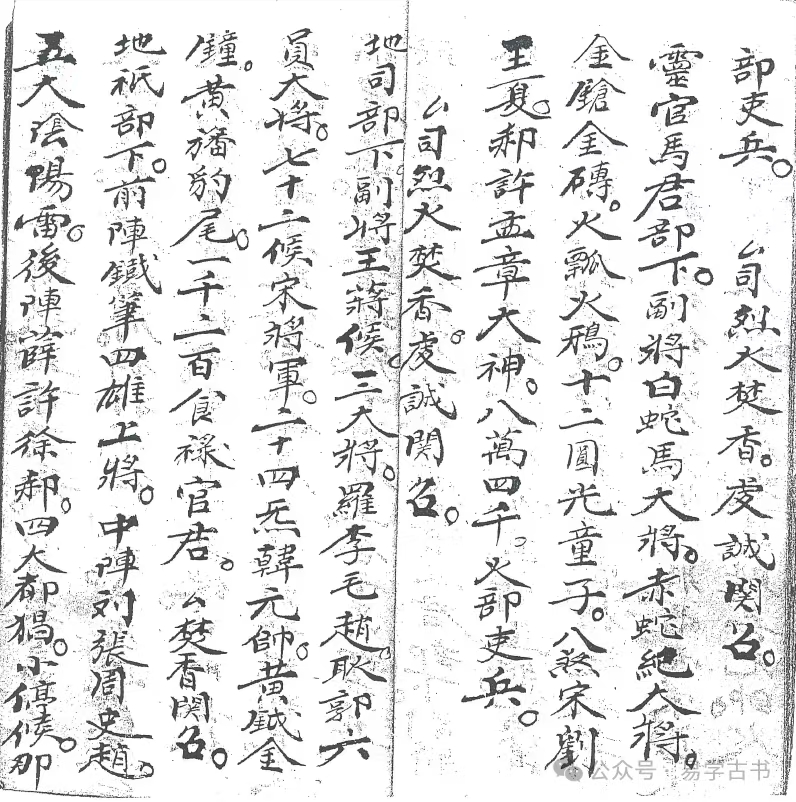 部吏兵。 厶司烈火焚香。虔誠関召。
靈官馬君部下。副將白蛇馬大將。赤蛇紀大將。
金鎗金磚。火瓢火鴉。十二圓光童子。八煞宋劉
王夏。郝許孟章大神。八萬四千。火部吏兵。
厶司烈火焚香。虔誠関召。
地司部下。副將王蔣侯。三大將。羅李毛趙。耿郭六
員大將。七十二候宋將軍。二十四炁韓元帥。黄鉞金
鐘。黄旛豹尾。一千二百食禄官君。 厶焚香関召。
地祇部下。前陣鐵筆四雄上將。中陣刘張周史趙。
五大陰陽雷。後陣薛許徐郝。四大都猖。小傳侯。那
公众号·易学古书